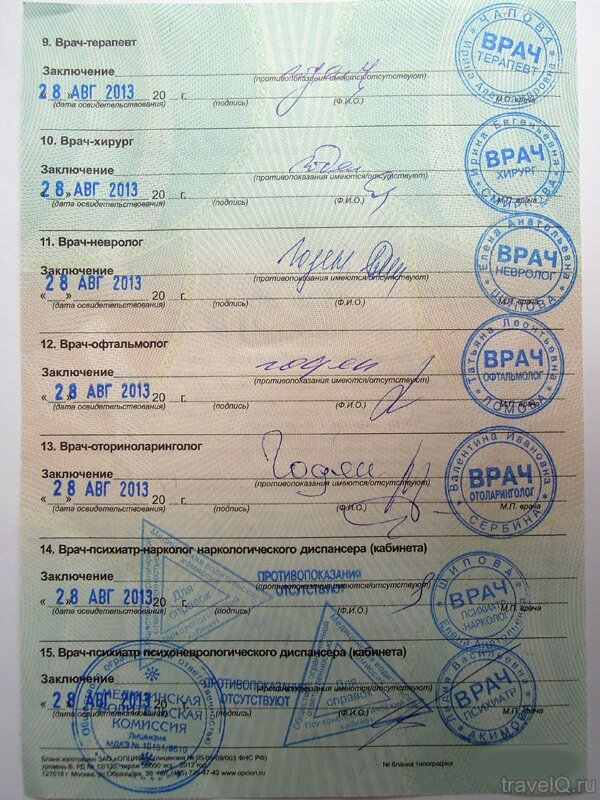 9. Врач-терапевт
Заключение
(противопоказания имеются/отсутствуют)
28 АВГ 2013 20 г.
(дата освидетельствования) (подпись) (Ф.И.О.) М.П. врача
ЧАПОВА
ВРАЧ
ТЕРАПЕВТ
10. Врач-хирург
Заключение годен
(противопоказания имеются/отсутствуют)
28 АВГ 2013 20 г.
(дата освидетельствования) (подпись) (Ф.И.О.) М.П. врача
Ирина Евгеньевна
ВРАЧ
ХИРУРГ
11. Врач-невролог
Заключение годен
(противопоказания имеются/отсутствуют)
« 28 АВГ 2013 20 г.
(дата освидетельствования) (подпись) (Ф.И.О.) М.П. врача
Елена Анатольевна
ВРАЧ
НЕВРОЛОГ
12. Врач-офтальмолог
Заключение годен
(противопоказания имеются/отсутствуют)
« 28 АВГ 2013 20 г.
(дата освидетельствования) (подпись) (Ф.И.О.) М.П. врача
Татьяна Леонтьевна
ВРАЧ
ОФТАЛЬМОЛОГ
ЛОМОВА
13. Врач-оториноларинголог
Заключение Годен
(противопоказания имеются/отсутствуют)
« 28 АВГ 2013 20 г.
(дата освидетельствования) (подпись) (Ф.И.О.) М.П. врача
Валентина Ивановна
ВРАЧ
ОТОЛАРИНГОЛОГ
СЕРБИНА
14. Врач-психиатр-нарколог наркологического диспансера (кабинета)
Заключение ПРОТИВОПОКАЗАНИЯ
ОТСУТСТВУЮТ
« 28 АВГ 2013 20 г.
(дата освидетельствования) (подпись) М.П. врача
Для
справок
ЩИПОВА
ВРАЧ
ПСИХИАТР
-НАРКОЛОГ
15. Врач-психиатр психоневрологического диспансера (кабинета)
Заключение ПРОТИВОПОКАЗАНИЯ
ОТСУТСТВУЮТ
« 28 АВГ 2013
Для
справок
МЕДИЦИНСКАЯ
ВОДИТЕЛЬСКАЯ
КОМИССИЯ
Лицензия
Лидия Васильевна
ВРАЧ
ПСИХИАТР
АКИМОВА
М.П. врача
№ бланка типографии
travelQ.ru